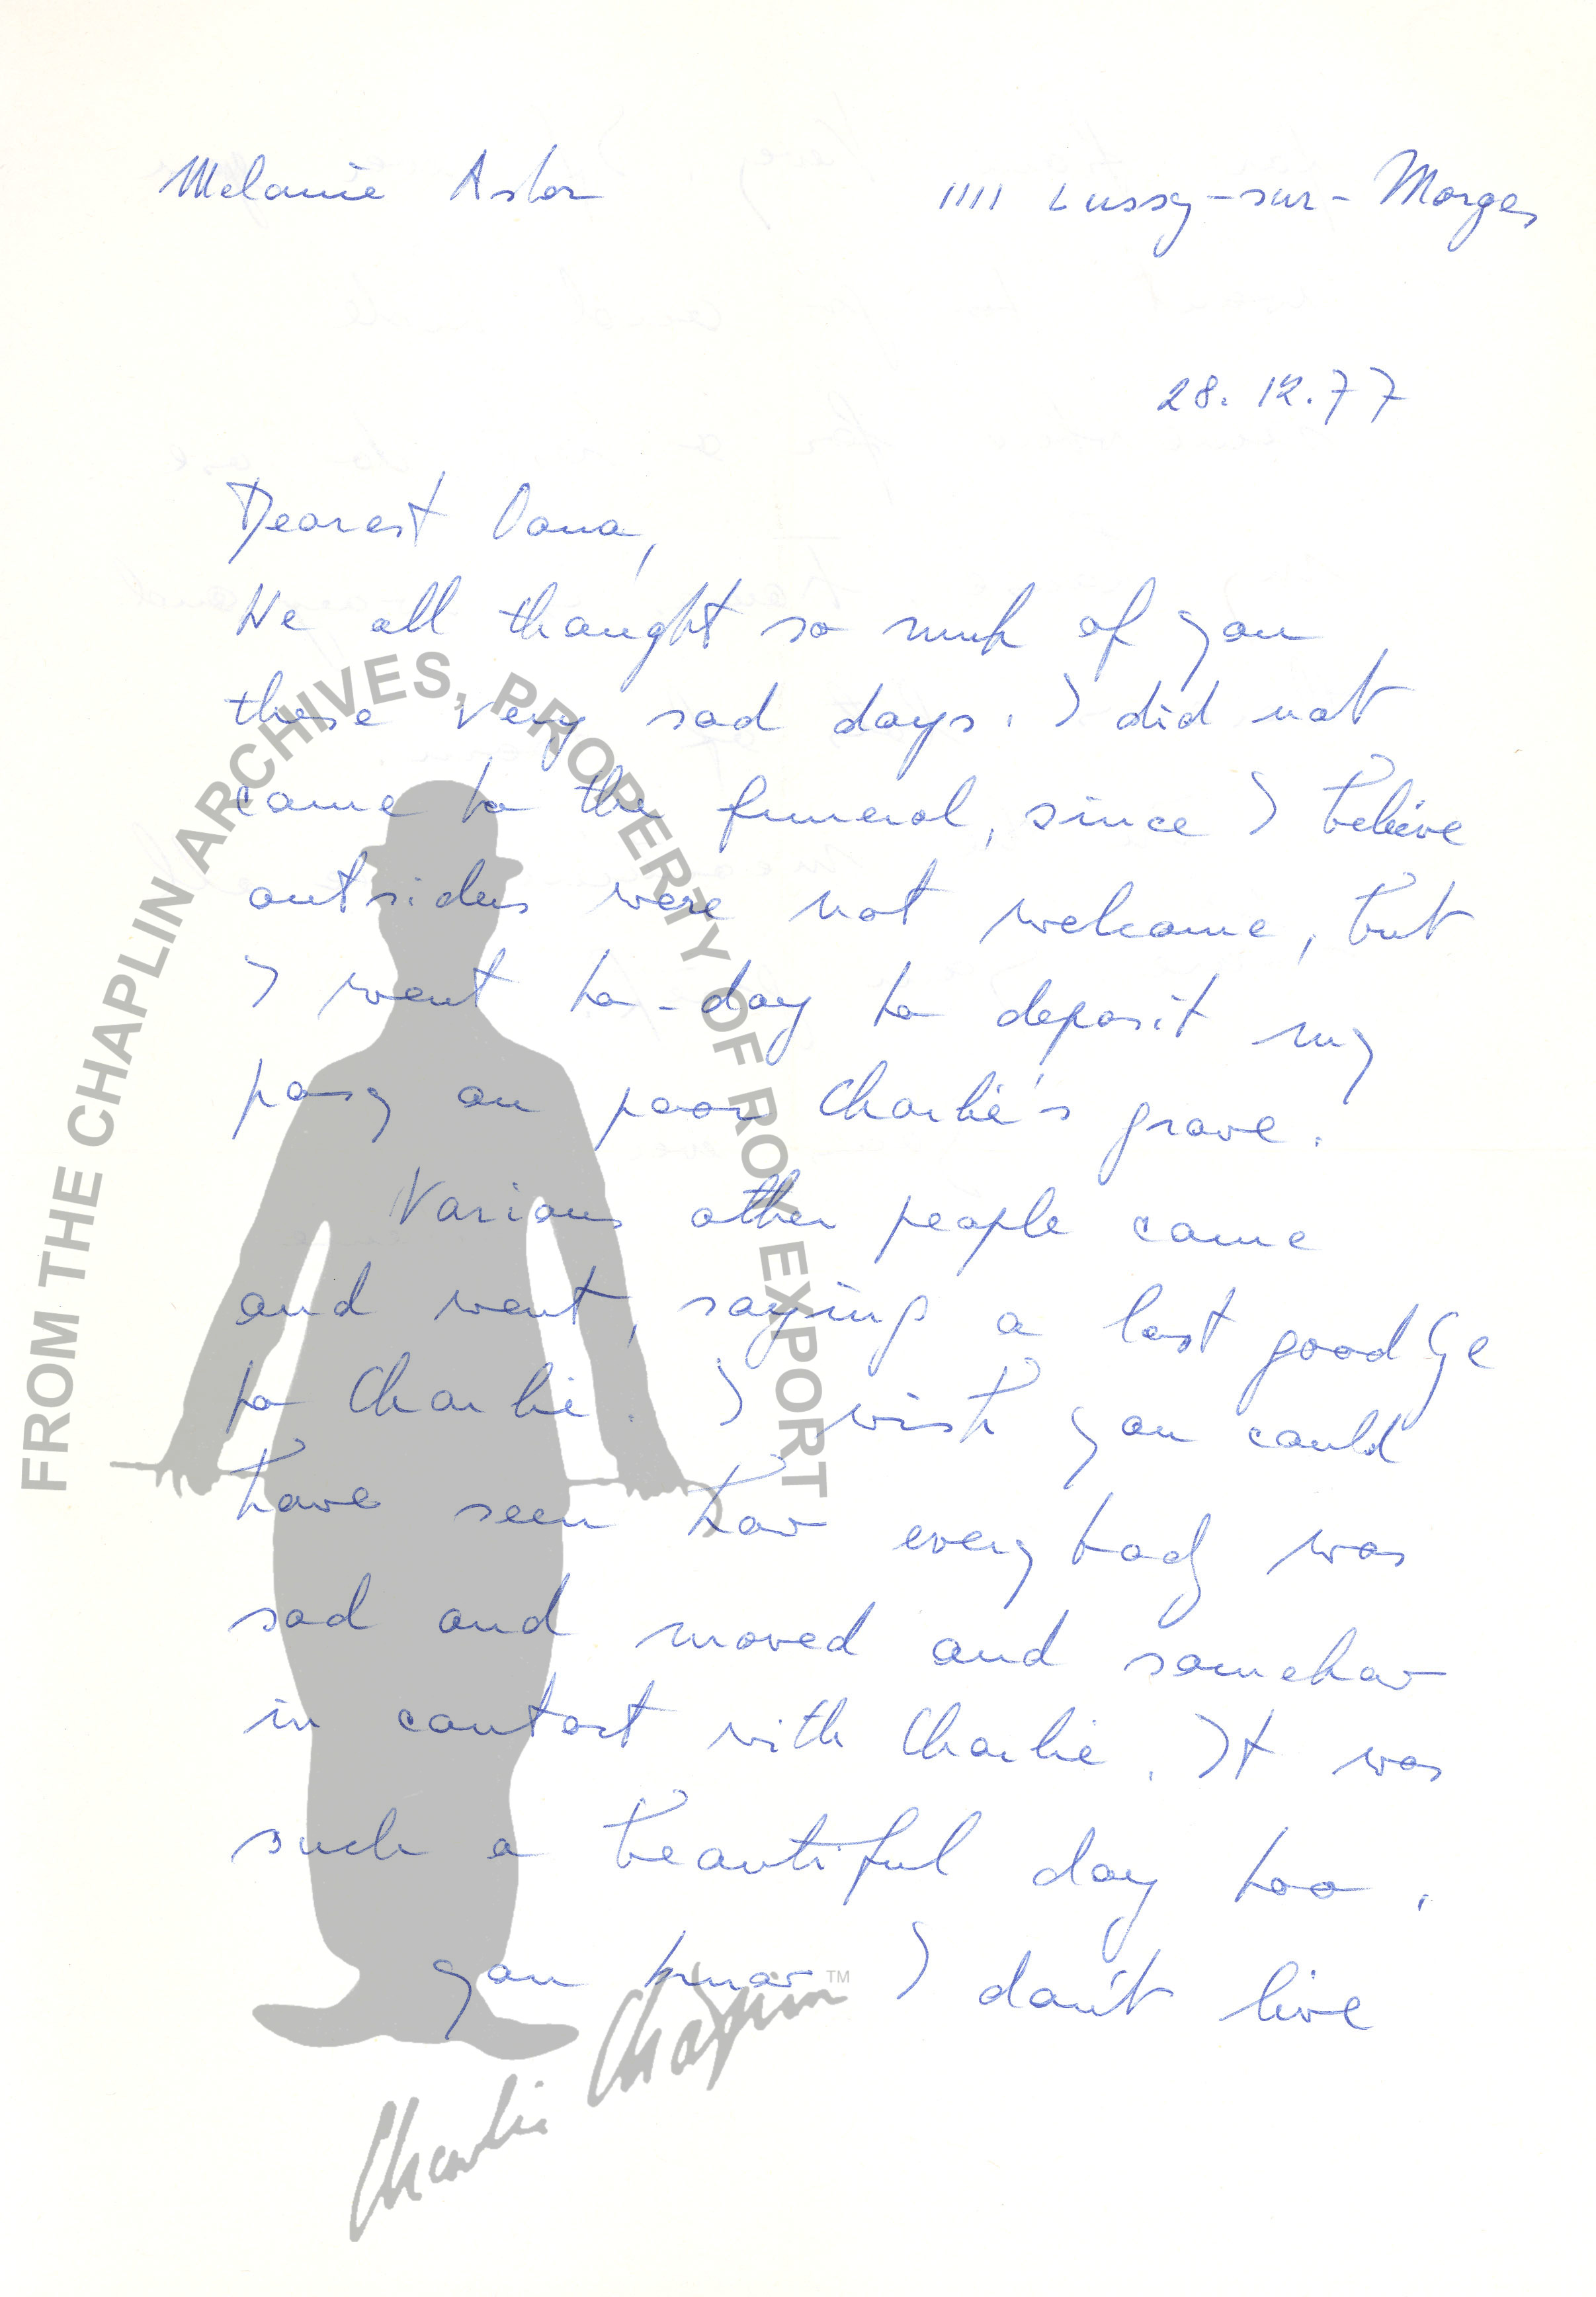 Melanie Astor 1111 Lussy-sur-Morges
28.12.77
Dearest Oona,
We all thought so much of you
these very sad days. I did not
come to the funeral, since I believe
outsiders were not welcome, but
I went to-day to deposit my
posy on poor Charlie's grave.
Various other people came
and went, saying a last goodbye
to Charlie. I wish you could
have seen how everybody was
sad and moved and somehow
in contact with Charlie. It was
such a beautiful day too.
You know I don't live
FROM THE CHAPLIN ARCHIVES, PROPERTY OF ROY EXPORT
Charlie Chaplin™